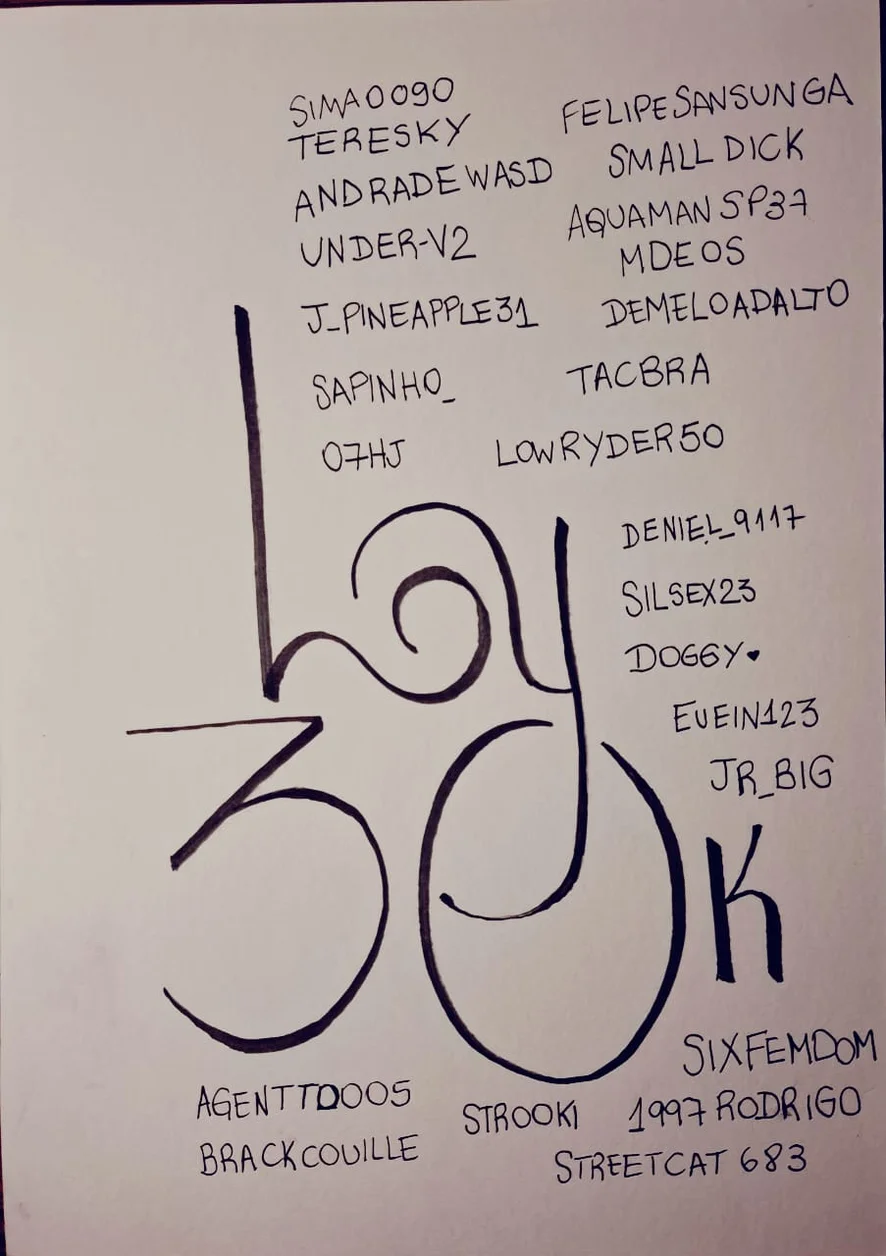 SIMA0090
TERESKY
ANDRADEWASD
UNDER-V2
J_PINEAPPLE31
SAPINHO_
07HJ
FELIPESANSUNGA
SMALL DICK
AQUAMAN SP37
MDEOS
DEMELOADALTO
TACBRA
LOWRYDER50
DENIEL_9117
SILSEX23
DOGGY♥
EVEIN123
JR_BIG
Lay
30K
SIXFEMDOM
AGENTTD005
STROOKI
1997RODRIGO
BRACKCOUILLE
STREETCAT 683